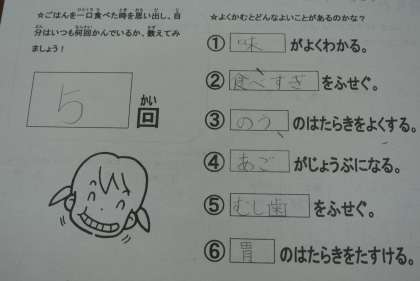 ☆ごはんを一口食べた時を思い出し、自
分はいつも何回かんでいるか、数えてみ
ましょう！
5 回
かい
☆よくかむとどんなよいことがあるのかな？
① 味 がよくわかる。
② 食べすぎ をふせぐ。
③ のう のはたらきをよくする。
④ あご がじょうぶになる。
⑤ むし歯 をふせぐ。
⑥ 胃 のはたらきをたすける。